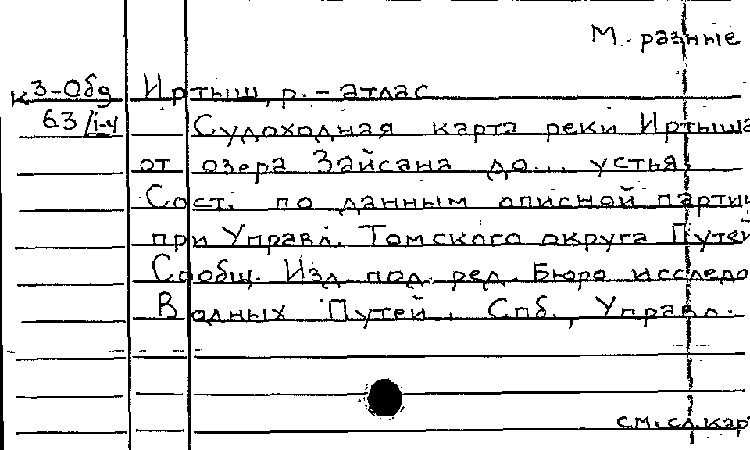 М. разные
К3-Обд Иртыш, р. - атлас
63/1-4 Судоходная карта реки Иртыша
от озера Зайсана до... устья
Сост. по данным описной партии
при Управл. Томского округа Путей
Сообщ. Изд. под. ред. Бюро исследо
Водных Путей. Спб., Управл.
см. сл. кар